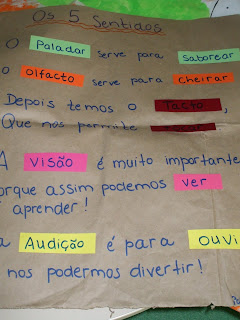 Os 5 Sentidos
O Paladar serve para Saborear
O Olfacto serve para Cheirar
Depois temos o Tacto,
Que nos permite
A Visão é muito importante
porque assim podemos ver
aprender!
a Audição é para ouvi
nos podermos divertir!